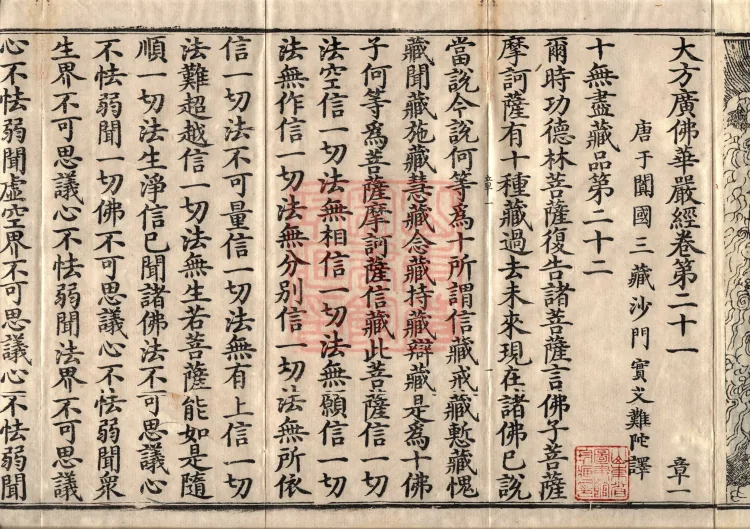 大方廣佛華嚴經卷第二十一 章一
唐于闐國三藏沙門實叉難陀譯
十無盡藏品第二十二
爾時功德林菩薩復告諸菩薩言佛子菩薩
摩訶薩有十種藏過去未來現在諸佛已說
章一
當說今說何等為十所謂信藏戒藏慙藏愧
藏聞藏施藏慧藏念藏持藏辯藏是為十佛
子何等為菩薩摩訶薩信藏此菩薩信一切
法空信一切法無相信一切法無願信一切
法無作信一切法無分別信一切法無所依
信一切法不可量信一切法無有上信一切
法難超越信一切法無生若菩薩能如是隨
順一切法生淨信已聞諸佛法不可思議心
不怯弱聞一切佛不可思議心不怯弱聞眾
生界不可思議心不怯弱聞法界不可思議
心不怯弱聞虛空界不可思議心不怯弱聞